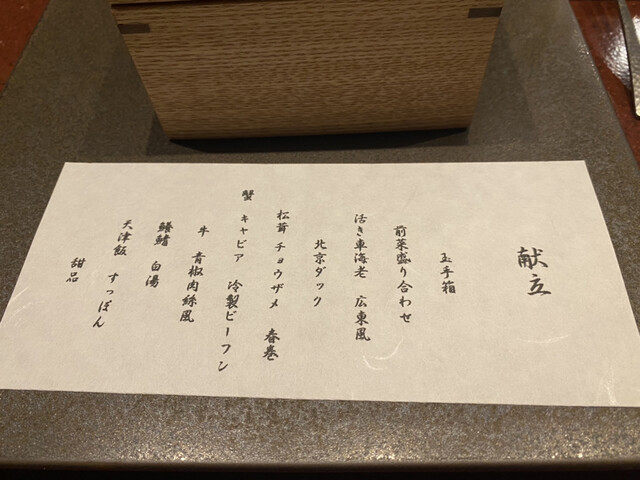 献立
玉手箱
前菜盛り合わせ
活き車海老 広東風
北京ダック
松茸 チョウザメ 春巻
蟹 キャビア 冷製ビーフン
牛 青椒肉絲風
鱶鰭 白湯
天津飯 すっぽん
甜品